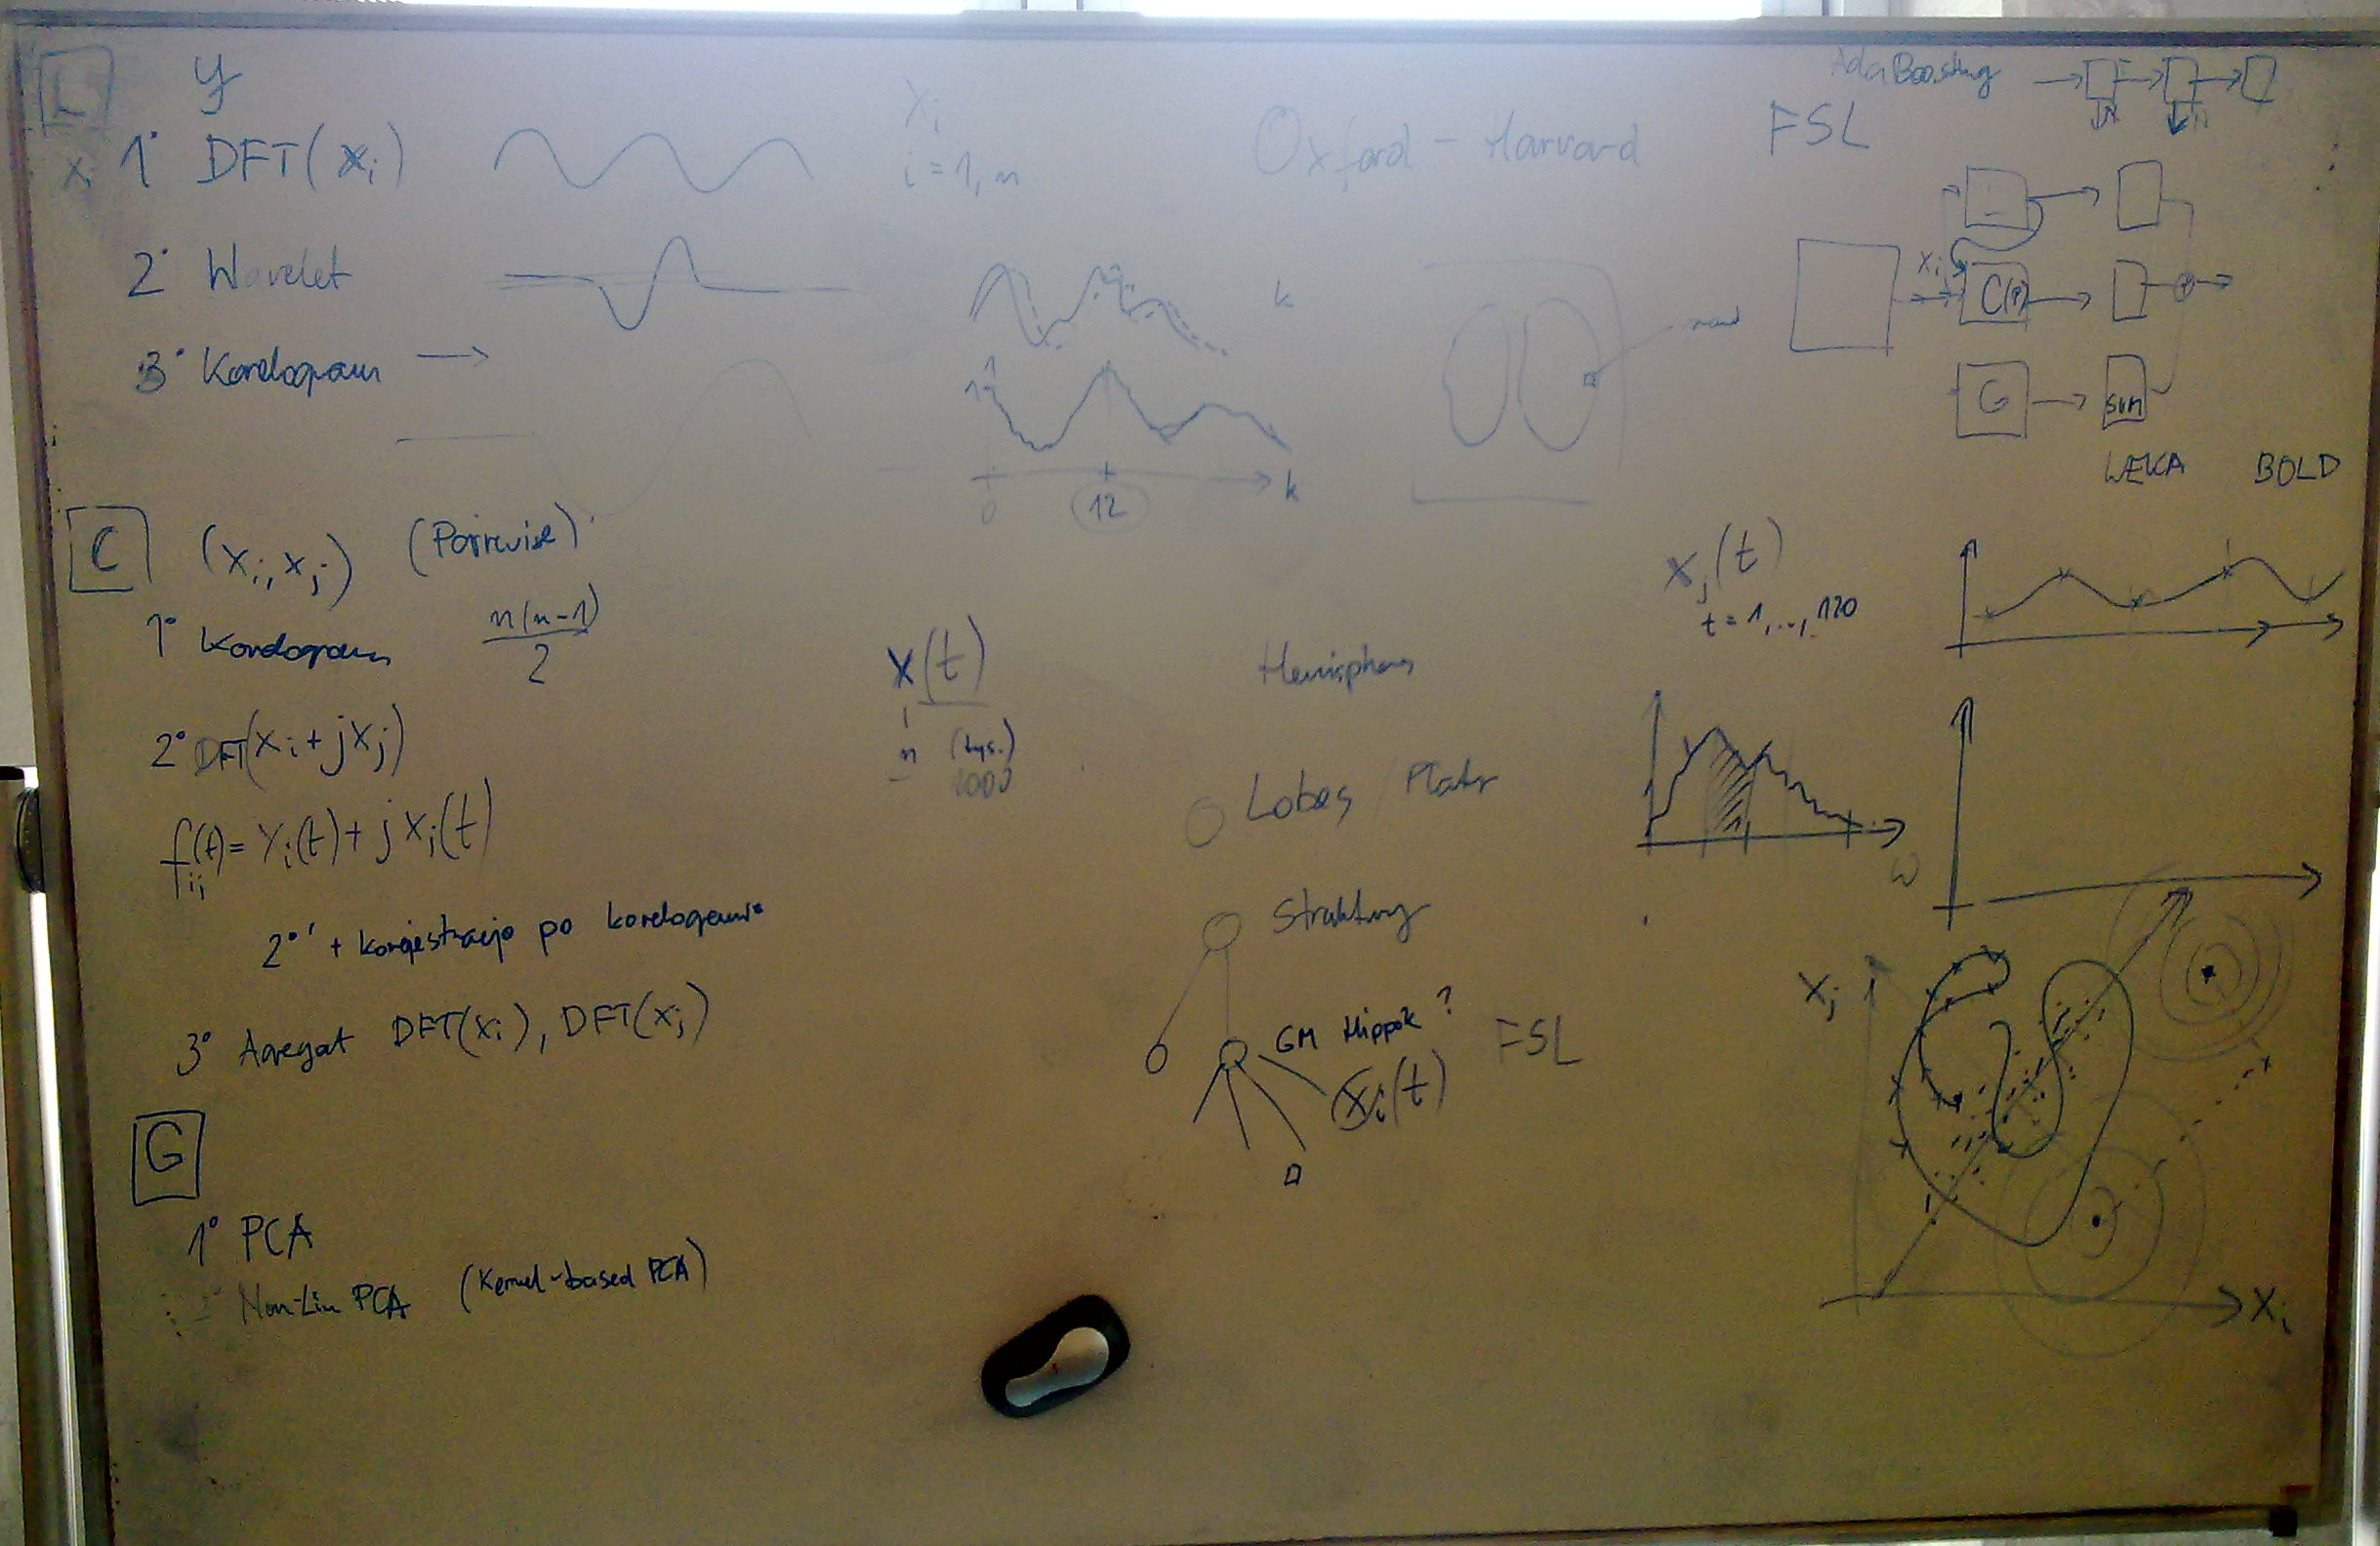 L
y
x_i 1° DFT(x_i)
2° Wavelet
3° Korelogram →
C (x_i, x_j) (Pairwise)
1° Korelogram n(n-1)/2
2° DFT(x_i + jx_j)
f_ij(t) = x_i(t) + j x_j(t)
3° Agregat DFT(x_i), DFT(x_j)
G
1° PCA
Non-Lin PCA (Kernel-based PCA)
x_i
i = 1, n
k
1
0 12 k
x_i(t)
n (tys.)
1000
Oxford - Harvard FSL
Lobes
Struktury
GM Hippok ? FSL
x_i(t)
AdaBoosting
x_i
C(P)
G SUM
WEKA BOLD
x_j(t)
t = 1, ..., 120
ω
x_j
x_i